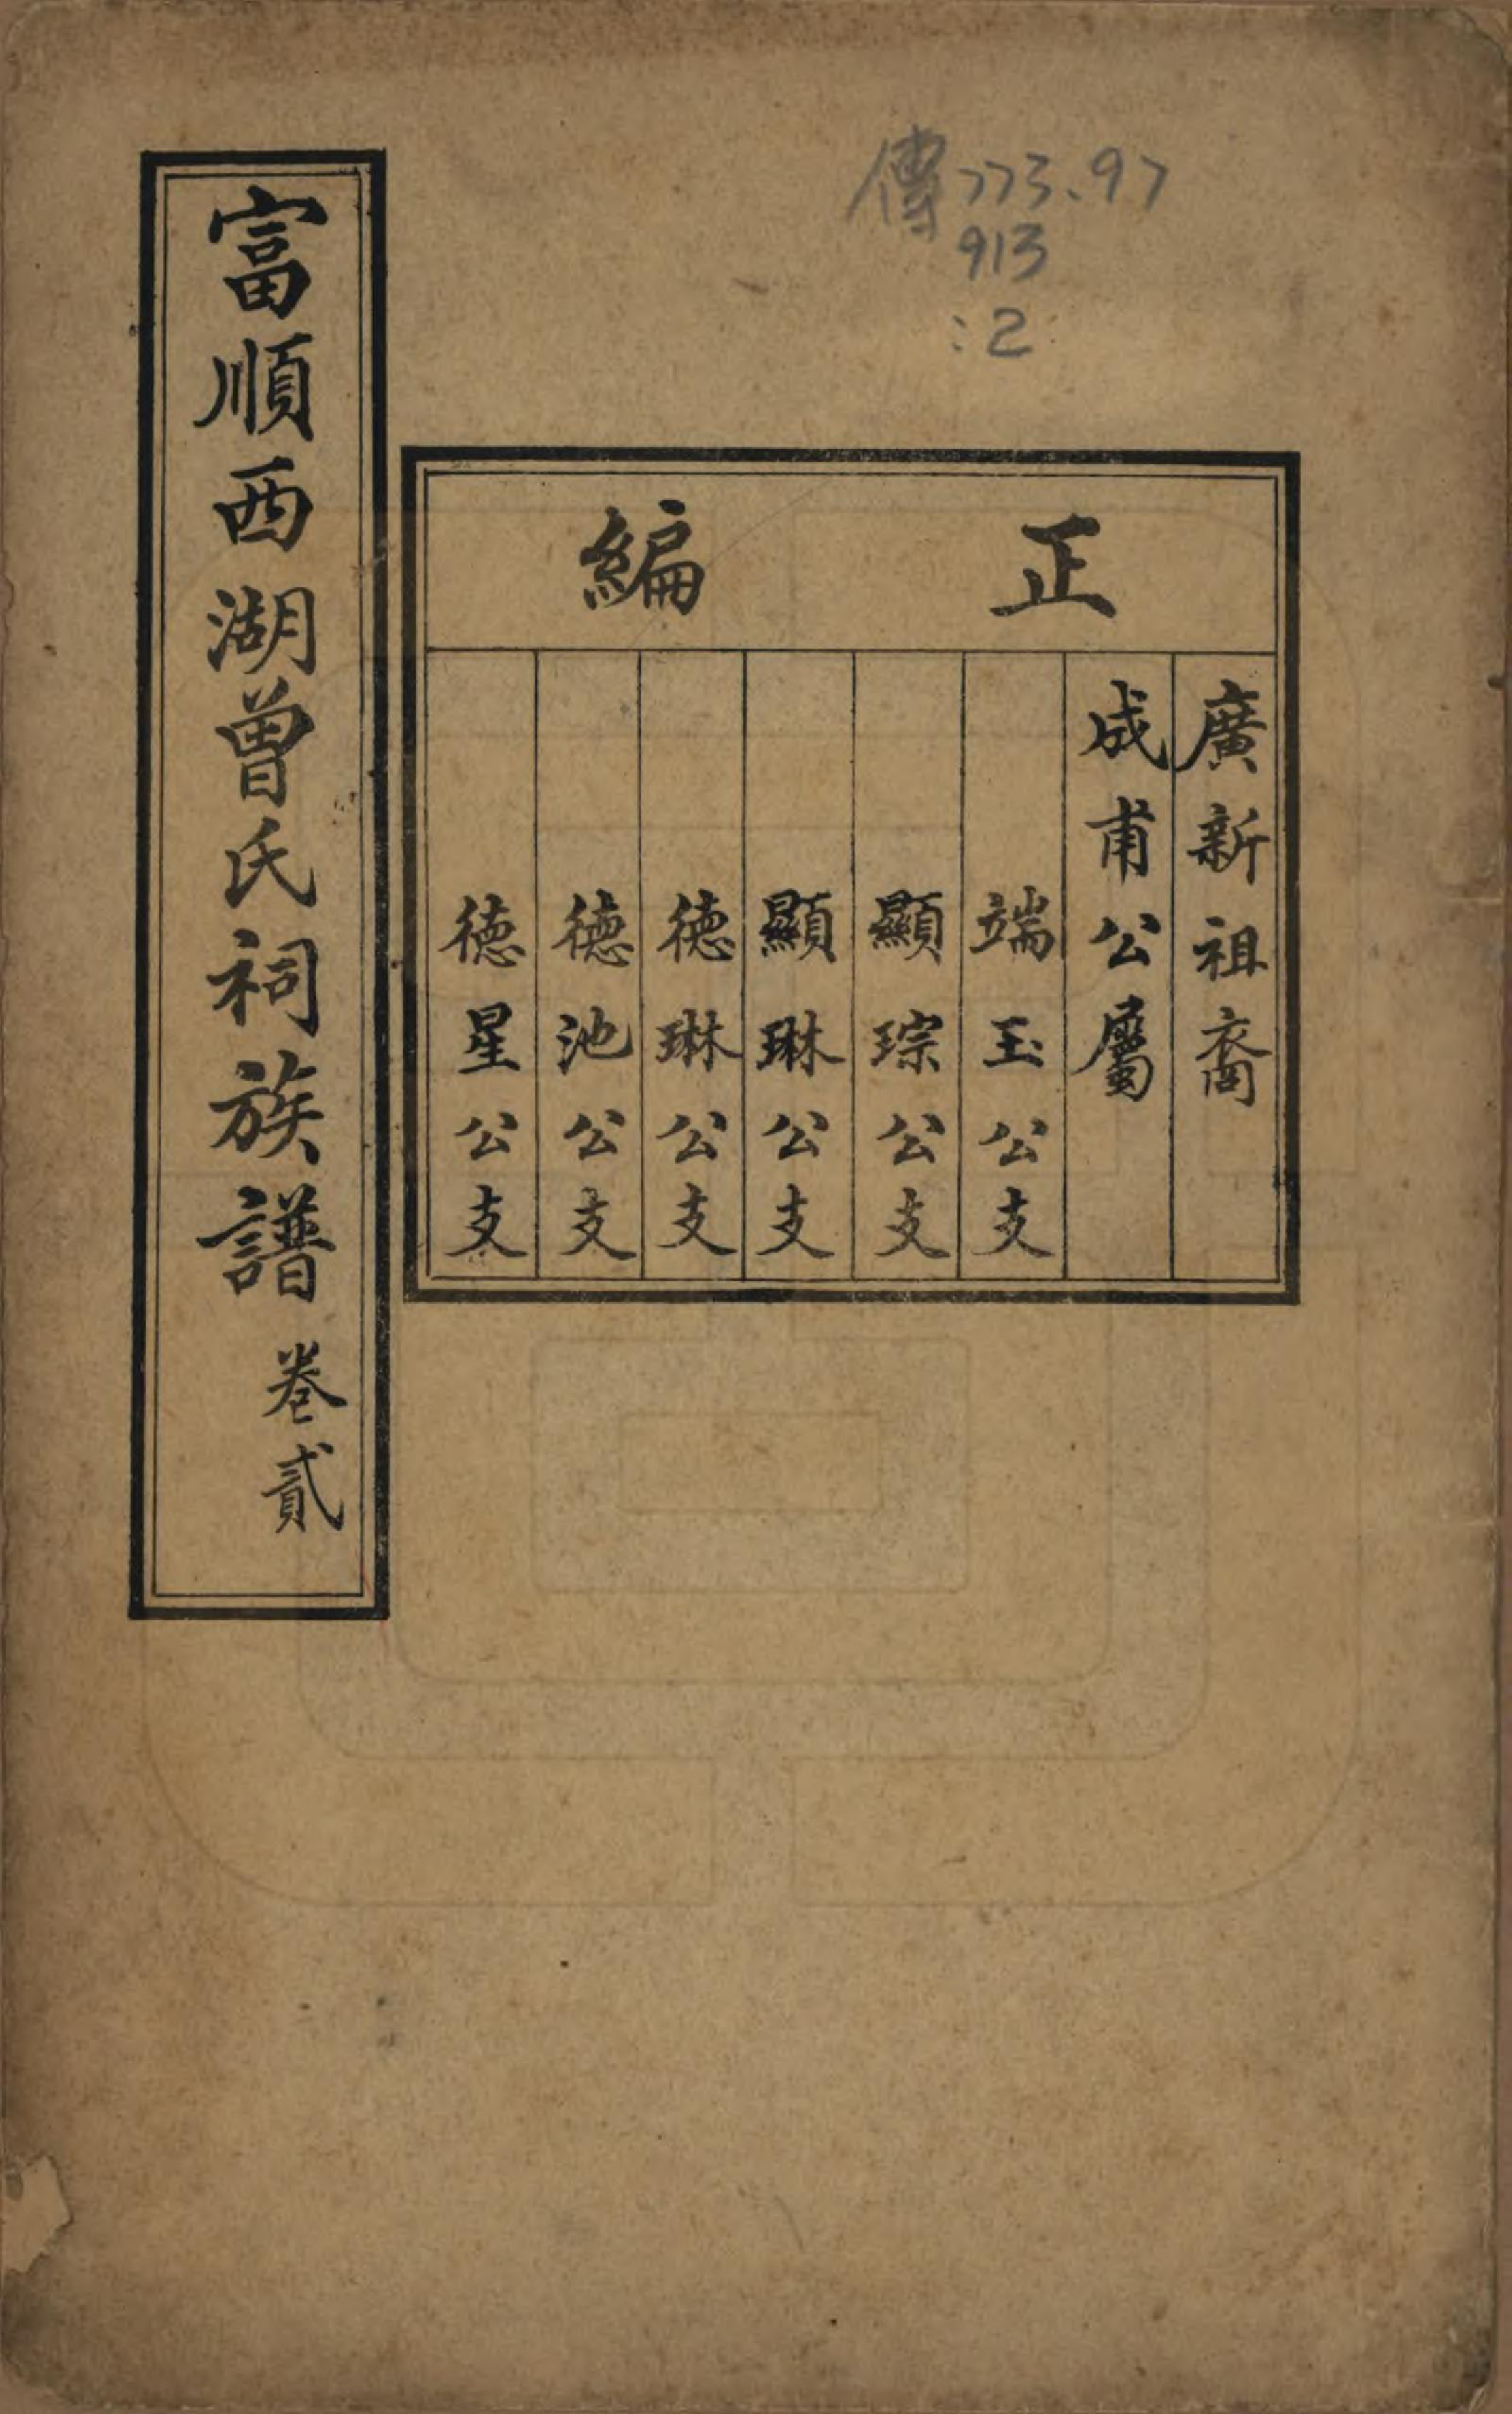 傳773.97
913
:2
正編
廣新祖裔
成甫公屬
端玉公支
顯琮公支
顯琳公支
德琳公支
德池公支
德星公支
富順西湖曾氏祠族譜 卷貳